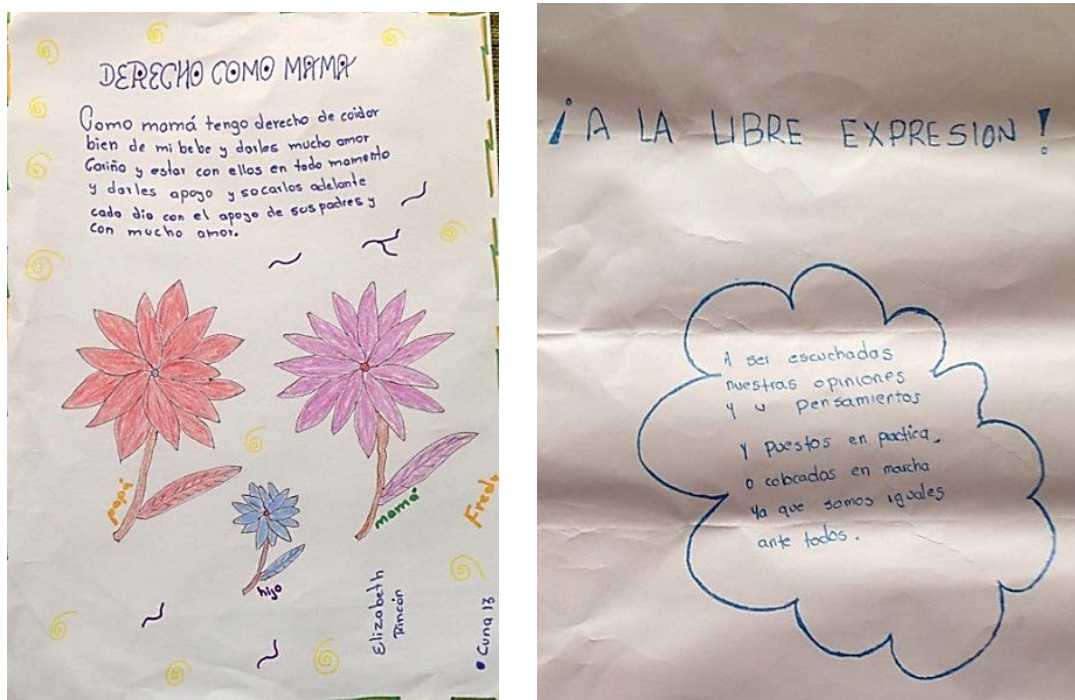 DERECHO COMO MAMA
Como mamá tengo derecho de coidar
bien de mi bebe y darles mucho amor
Cariño y estar con ellos en todo momento
y darles apoyo y socarlos adelante
cada dia con el apoyo de sus padres y
con mucho amor.
papá
mamá
hijo
Elizabeth
Rincón
Cuna 13
¡A LA LIBRE EXPRESION!
A ser escuchadas
nuestras opiniones
y u pensamientos
Y puestos en practica,
o colocadas en marcha
Ya que somos iguales
ante todos.